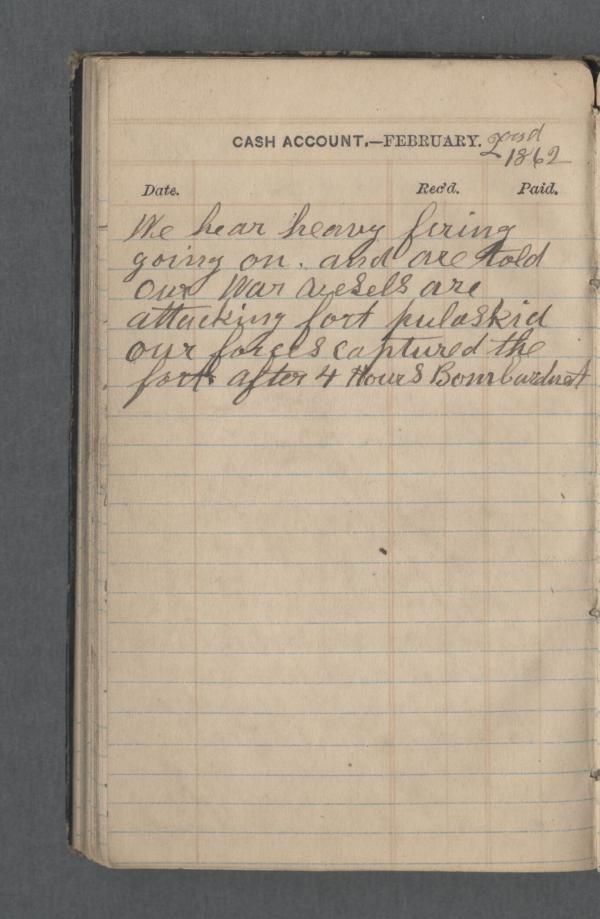 CASH ACCOUNT.—FEBRUARY. 1862
Date. Rec'd. Paid.
We hear heavy firing
going on. and are told
our War vesels are
attacking fort pulaskid
our forces captured the
fort after 4 Hours Bombardmet